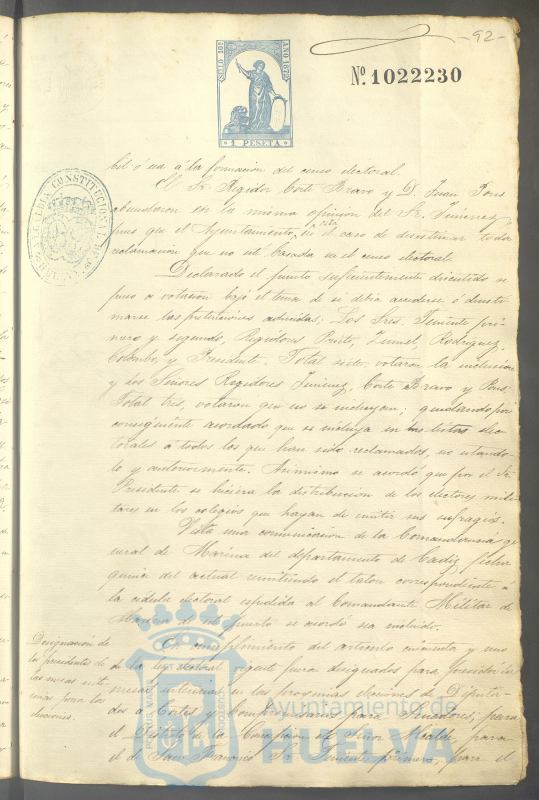 -92-
SELLO 10º AÑO 1872
1 PESETA
Nº 1022230
ALCALDIA CONSTITUCIONAL
bil ó sea á la formacion del censo electoral.
El Sr. Regidor Corte Bravo y D. Juan Pons
abundaron en la misma opinion del Sr. Jimenez,
pues que el Ayuntamiento, está en el caso de desestimar toda
reclamacion que no esté basada en el censo electoral.
Declarado el punto suficientemente discutido se
puso a votacion bajo el tema de si debia accederse ó desesti
marse las pretenciones aducidas; Los Sres. Teniente pri-
mero y segundo, Regidores Prieto, Rodriguez,
Colombo, y Presidente. Total siete, votaron la inclusion
y los Señores Regidores Jimenez, Corte Bravo y Pons
Total tres, votaron que no se incluyan; quedando por
consiguiente acordado que se incluya en las listas elec
torales á todos los que han sido reclamados, no estando-
lo y anteriormente. Asimismo se acordó que por el Sr.
Presidente se hiciera la distribucion de los electores mili-
tares en los colegios que hayan de emitir sus sufragios.
Vista una comunicacion de la Comandancia ge
neral de Marina del departamento de Cadiz, fecha
quince del actual remitiendo el talon correspondiente á
la cédula electoral espedida al Comandante Militar de
Marina de este puerto se acordó sea incluido.
Designacion de
los presidentes de
las mesas inte
rinas para las
elecciones.
En cumplimiento del articulo cincuenta y uno
de la ley electoral vigente para designados para presidir las
mesas interinas en las proximas elecciones de Diputa-
dos a Cortes y Compromisarios para Senadores; para
el Distrito de la Concepcion el Señor Alcalde, para
el de San Francisco Sr. Teniente primero, para el
Ayuntamiento de
HUELVA